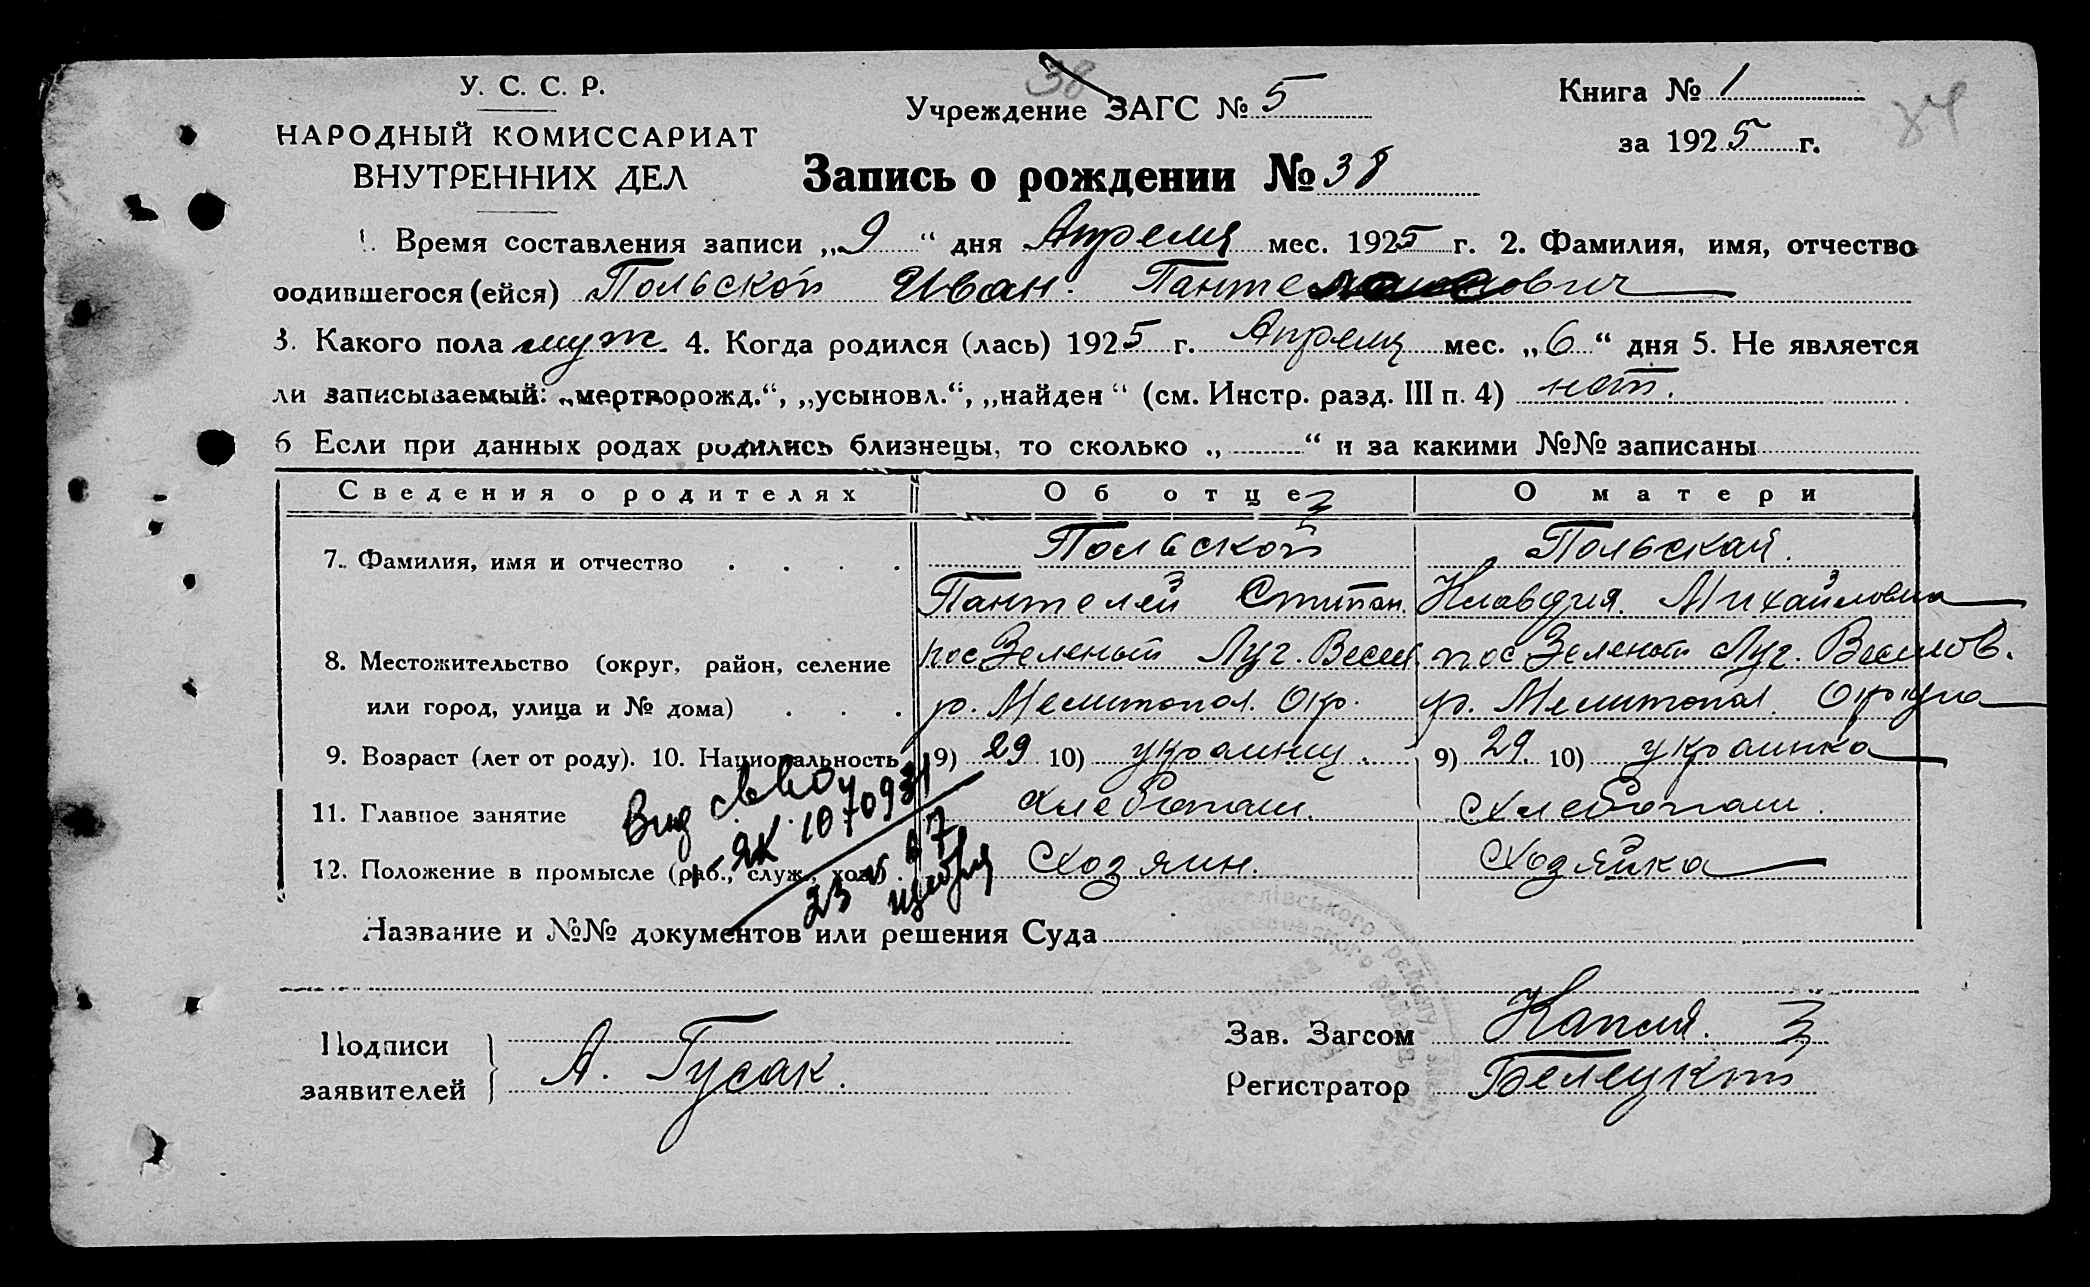 У. С. С. Р.
НАРОДНЫЙ КОМИССАРИАТ
ВНУТРЕННИХ ДЕЛ
38
Учреждение ЗАГС № 5
Книга № 1
за 1925 г.
84
Запись о рождении № 38
1. Время составления записи „9“ дня Апреля мес. 1925 г. 2. Фамилия, имя, отчество
родившегося (ейся) Польской Иван Пантелеймонович
3. Какого пола муж. 4. Когда родился (лась) 1925 г. Апреля мес. „6“ дня 5. Не является
ли записываемый: „мертворожд.“, „усыновл.“, „найден“ (см. Инстр. разд. III п. 4) нет.
6 Если при данных родах родились близнецы, то сколько „ “ и за какими №№ записаны
Сведения о родителях Об отце О матери
7. Фамилия, имя и отчество . . . . Польской Польская.
Пантелей Стипан. Клавдия. Михайловна
8. Местожительство (округ, район, селение пос. Зеленый Луг. Весел. пос. Зеленый Луг. Веселов.
или город, улица и № дома) . . . р. Мелитопол. Окр. р. Мелитопол. Округа
9. Возраст (лет от роду). 10. Национальность 9) 29 10) украинец. 9) 29. 10) украинка
11. Главное занятие Хлебопаш. Хлебопаш.
12. Положение в промысле (раб., служ., хоз.) . Хозяин. Хозяйка
Вид
ЯК 1070931
23
Название и №№ документов или решения Суда
Подписи
заявителей
А. Гусак.
Зав. Загсом Капля.
Регистратор Белецкий